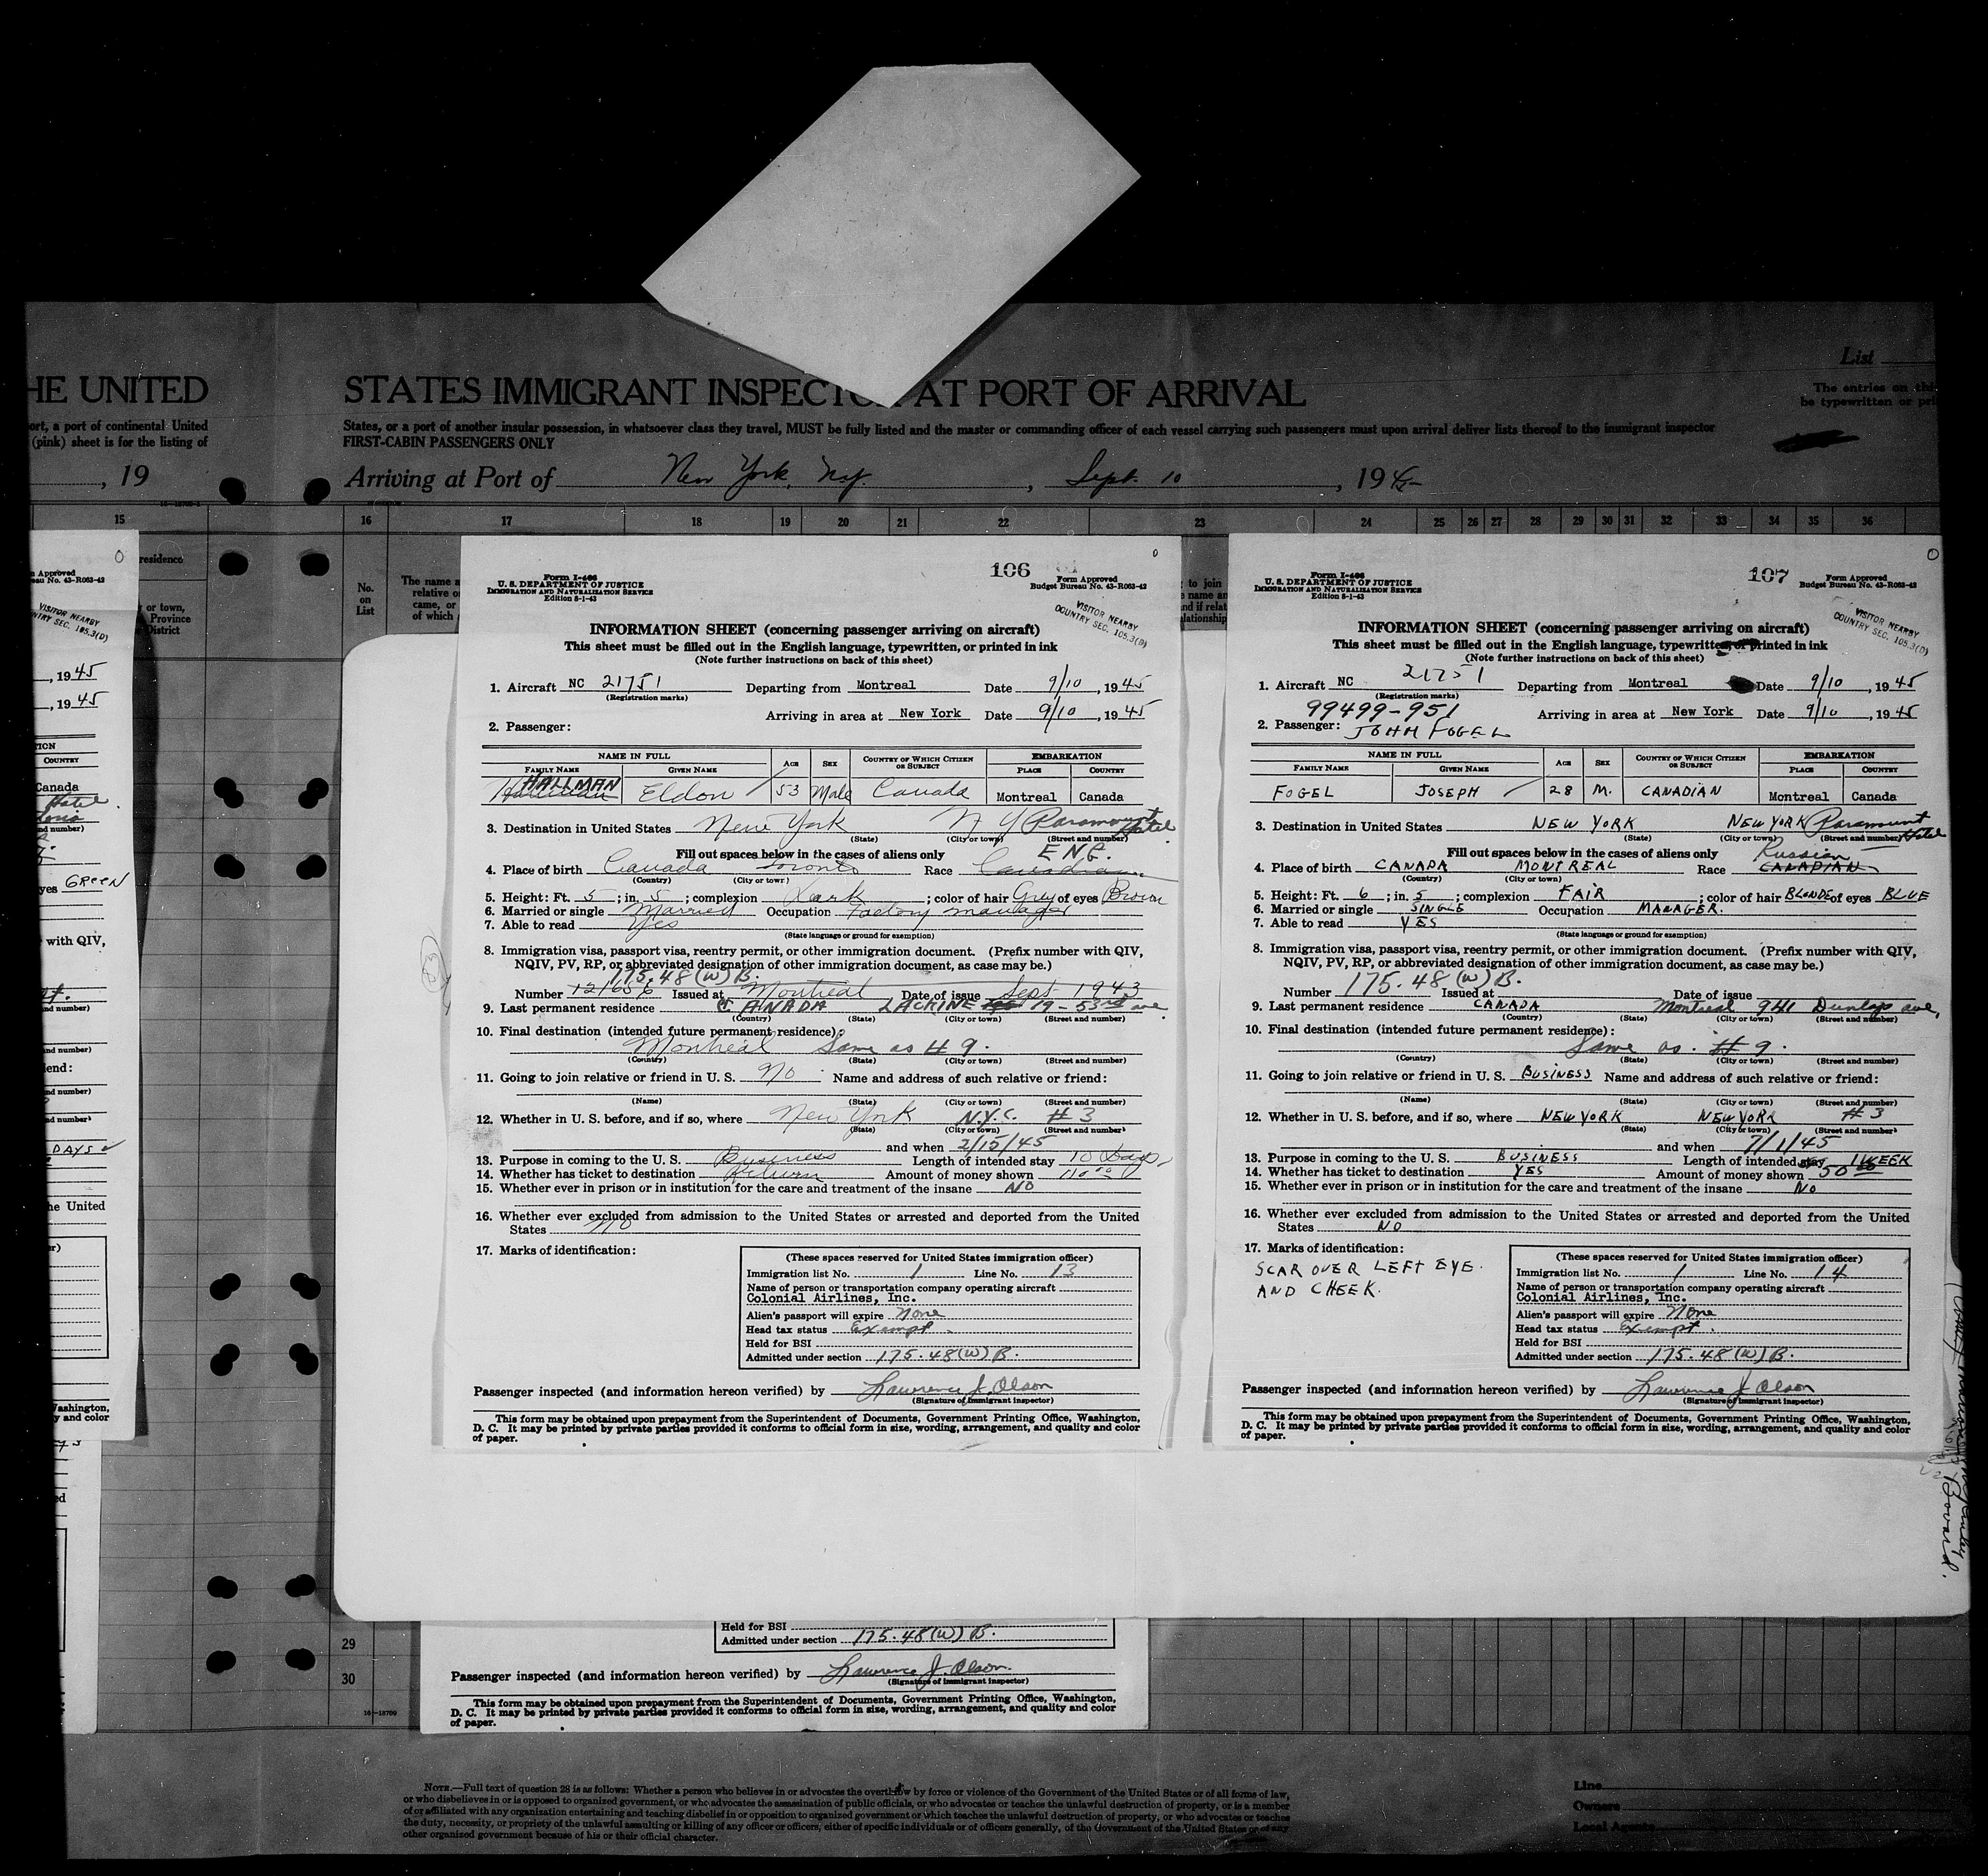 HE UNITED
ort, a port of continental United
(pink) sheet is for the listing of
, 19
15
residence
or town,
Province
District
Form Approved
Bureau No. 43-R063-42
VISITOR NEARBY
COUNTRY SEC. 105.3(D)
, 19 45
, 19 45
COUNTRY
Canada
Hotel
nd number)
yes GREEN
with QIV,
nd number)
nd number)
end:
nd number)
nd number)
DAYS
he United
Washington,
y and color
STATES IMMIGRANT INSPECTOR AT PORT OF ARRIVAL
List
The entries on this
be typewritten or pri
States, or a port of another insular possession, in whatsoever class they travel, MUST be fully listed and the master or commanding officer of each vessel carrying such passengers must upon arrival deliver lists thereof to the immigrant inspector
FIRST-CABIN PASSENGERS ONLY
Arriving at Port of New York, N.Y. , Sept. 10 , 1945
16 17 18 19 20 21 22 23 24 25 26 27 28 29 30 31 32 33 34 35 36
No.
on
List
The name a
relative o
came, or
of which
to join
name an
nd if relat
elationship
Form I-466
U. S. DEPARTMENT OF JUSTICE
IMMIGRATION AND NATURALIZATION SERVICE
Edition 8-1-43
106
Form Approved
Budget Bureau No. 43-R063-42
VISITOR NEARBY
COUNTRY SEC. 105.3(D)
INFORMATION SHEET (concerning passenger arriving on aircraft)
This sheet must be filled out in the English language, typewritten, or printed in ink
(Note further instructions on back of this sheet)
1. Aircraft NC 21751 Departing from Montreal Date 9/10 , 1945
(Registration marks)
Arriving in area at New York Date 9/10 , 1945
2. Passenger:
NAME IN FULL AGE SEX COUNTRY OF WHICH CITIZEN OR SUBJECT EMBARKATION
FAMILY NAME GIVEN NAME PLACE COUNTRY
HALLMAN Eldon 53 Male Canada Montreal Canada
3. Destination in United States New York N Y Paramount Hotel
(State) (City or town) (Street and number)
Fill out spaces below in the cases of aliens only ENG.
4. Place of birth Canada Toronto Race Canadian
(Country) (City or town)
5. Height: Ft. 5 ; in. 5 ; complexion Dark ; color of hair Grey of eyes Brown
6. Married or single Married Occupation Factory manager
7. Able to read Yes
(State language or ground for exemption)
8. Immigration visa, passport visa, reentry permit, or other immigration document. (Prefix number with QIV,
NQIV, PV, RP, or abbreviated designation of other immigration document, as case may be.)
175.48 (W) B.
Number 121656 Issued at Montreal Date of issue Sept 1943
9. Last permanent residence CANADA LACHINE 19-53rd ave.
(Country) (State) (City or town) (Street and number)
10. Final destination (intended future permanent residence):
Montreal Same as # 9.
(Country) (State) (City or town) (Street and number)
11. Going to join relative or friend in U. S. No Name and address of such relative or friend:
(Name) (State) (City or town) (Street and number)
12. Whether in U. S. before, and if so, where New York N.Y.C. # 3
(State) (City or town) (Street and number)
and when 2/15/45
13. Purpose in coming to the U. S. Business Length of intended stay 10 Days
14. Whether has ticket to destination Return Amount of money shown 110.00
15. Whether ever in prison or in institution for the care and treatment of the insane NO
16. Whether ever excluded from admission to the United States or arrested and deported from the United
States NO
17. Marks of identification:
(These spaces reserved for United States immigration officer)
Immigration list No. 1 Line No. 13
Name of person or transportation company operating aircraft
Colonial Airlines, Inc.
Alien's passport will expire None
Head tax status Exempt.
Held for BSI
Admitted under section 175.48(W) B.
Passenger inspected (and information hereon verified) by Lawrence J. Olson
(Signature of immigrant inspector)
This form may be obtained upon prepayment from the Superintendent of Documents, Government Printing Office, Washington,
D. C. It may be printed by private parties provided it conforms to official form in size, wording, arrangement, and quality and color
of paper.
Form I-466
U. S. DEPARTMENT OF JUSTICE
IMMIGRATION AND NATURALIZATION SERVICE
Edition 8-1-43
107
Form Approved
Budget Bureau No. 43-R063-42
VISITOR NEARBY
COUNTRY SEC. 105.3(D)
INFORMATION SHEET (concerning passenger arriving on aircraft)
This sheet must be filled out in the English language, typewritten, or printed in ink
(Note further instructions on back of this sheet)
1. Aircraft NC 21751 Departing from Montreal Date 9/10 , 1945
(Registration marks)
99499-951 Arriving in area at New York Date 9/10 , 1945
2. Passenger: JOHN FOGEL
NAME IN FULL AGE SEX COUNTRY OF WHICH CITIZEN OR SUBJECT EMBARKATION
FAMILY NAME GIVEN NAME PLACE COUNTRY
FOGEL JOSEPH 28 M. CANADIAN Montreal Canada
3. Destination in United States NEW YORK NEW YORK Paramount Hotel
(State) (City or town) (Street and number)
Fill out spaces below in the cases of aliens only Russian
4. Place of birth CANADA MONTREAL Race CANADIAN
(Country) (City or town)
5. Height: Ft. 6 ; in. 5 ; complexion FAIR ; color of hair BLONDE of eyes BLUE
6. Married or single SINGLE Occupation MANAGER.
7. Able to read YES
(State language or ground for exemption)
8. Immigration visa, passport visa, reentry permit, or other immigration document. (Prefix number with QIV,
NQIV, PV, RP, or abbreviated designation of other immigration document, as case may be.)
Number 175.48 (W) B. Issued at Date of issue
9. Last permanent residence CANADA Montreal 941 Dunlop ave,
(Country) (State) (City or town) (Street and number)
10. Final destination (intended future permanent residence):
Same as. # 9.
(Country) (State) (City or town) (Street and number)
11. Going to join relative or friend in U. S. BUSINESS Name and address of such relative or friend:
(Name) (State) (City or town) (Street and number)
12. Whether in U. S. before, and if so, where NEW YORK NEW YORK # 3
(State) (City or town) (Street and number)
and when 7/1/45
13. Purpose in coming to the U. S. BUSINESS Length of intended stay 1 WEEK
14. Whether has ticket to destination YES Amount of money shown 50 00
15. Whether ever in prison or in institution for the care and treatment of the insane NO
16. Whether ever excluded from admission to the United States or arrested and deported from the United
States NO
17. Marks of identification:
SCAR OVER LEFT EYE.
AND CHEEK.
(These spaces reserved for United States immigration officer)
Immigration list No. 1 Line No. 14
Name of person or transportation company operating aircraft
Colonial Airlines, Inc.
Alien's passport will expire None
Head tax status Exempt.
Held for BSI
Admitted under section 175.48(W) B.
Passenger inspected (and information hereon verified) by Lawrence J. Olson
(Signature of immigrant inspector)
This form may be obtained upon prepayment from the Superintendent of Documents, Government Printing Office, Washington,
D. C. It may be printed by private parties provided it conforms to official form in size, wording, arrangement, and quality and color
of paper.
29
30
16-18709
Held for BSI
Admitted under section 175.48(W) B.
Passenger inspected (and information hereon verified) by Lawrence J. Olson.
(Signature of immigrant inspector)
This form may be obtained upon prepayment from the Superintendent of Documents, Government Printing Office, Washington,
D. C. It may be printed by private parties provided it conforms to official form in size, wording, arrangement, and quality and color
of paper.
NOTE.—Full text of question 28 is as follows: Whether a person who believes in or advocates the overthrow by force or violence of the Government of the United States or of all forms of law,
or who disbelieves in or is opposed to organized government, or who advocates the assassination of public officials, or who advocates or teaches the unlawful destruction of property, or is a member
of or affiliated with any organization entertaining and teaching disbelief in or opposition to organized government or which teaches the unlawful destruction of property, or who advocates or teaches
the duty, necessity, or propriety of the unlawful assaulting or killing of any officer or officers, either of specific individuals or of officers generally, of the Government of the United States or of any
other organized government because of his or their official character.
Line
Owners
Local Agents